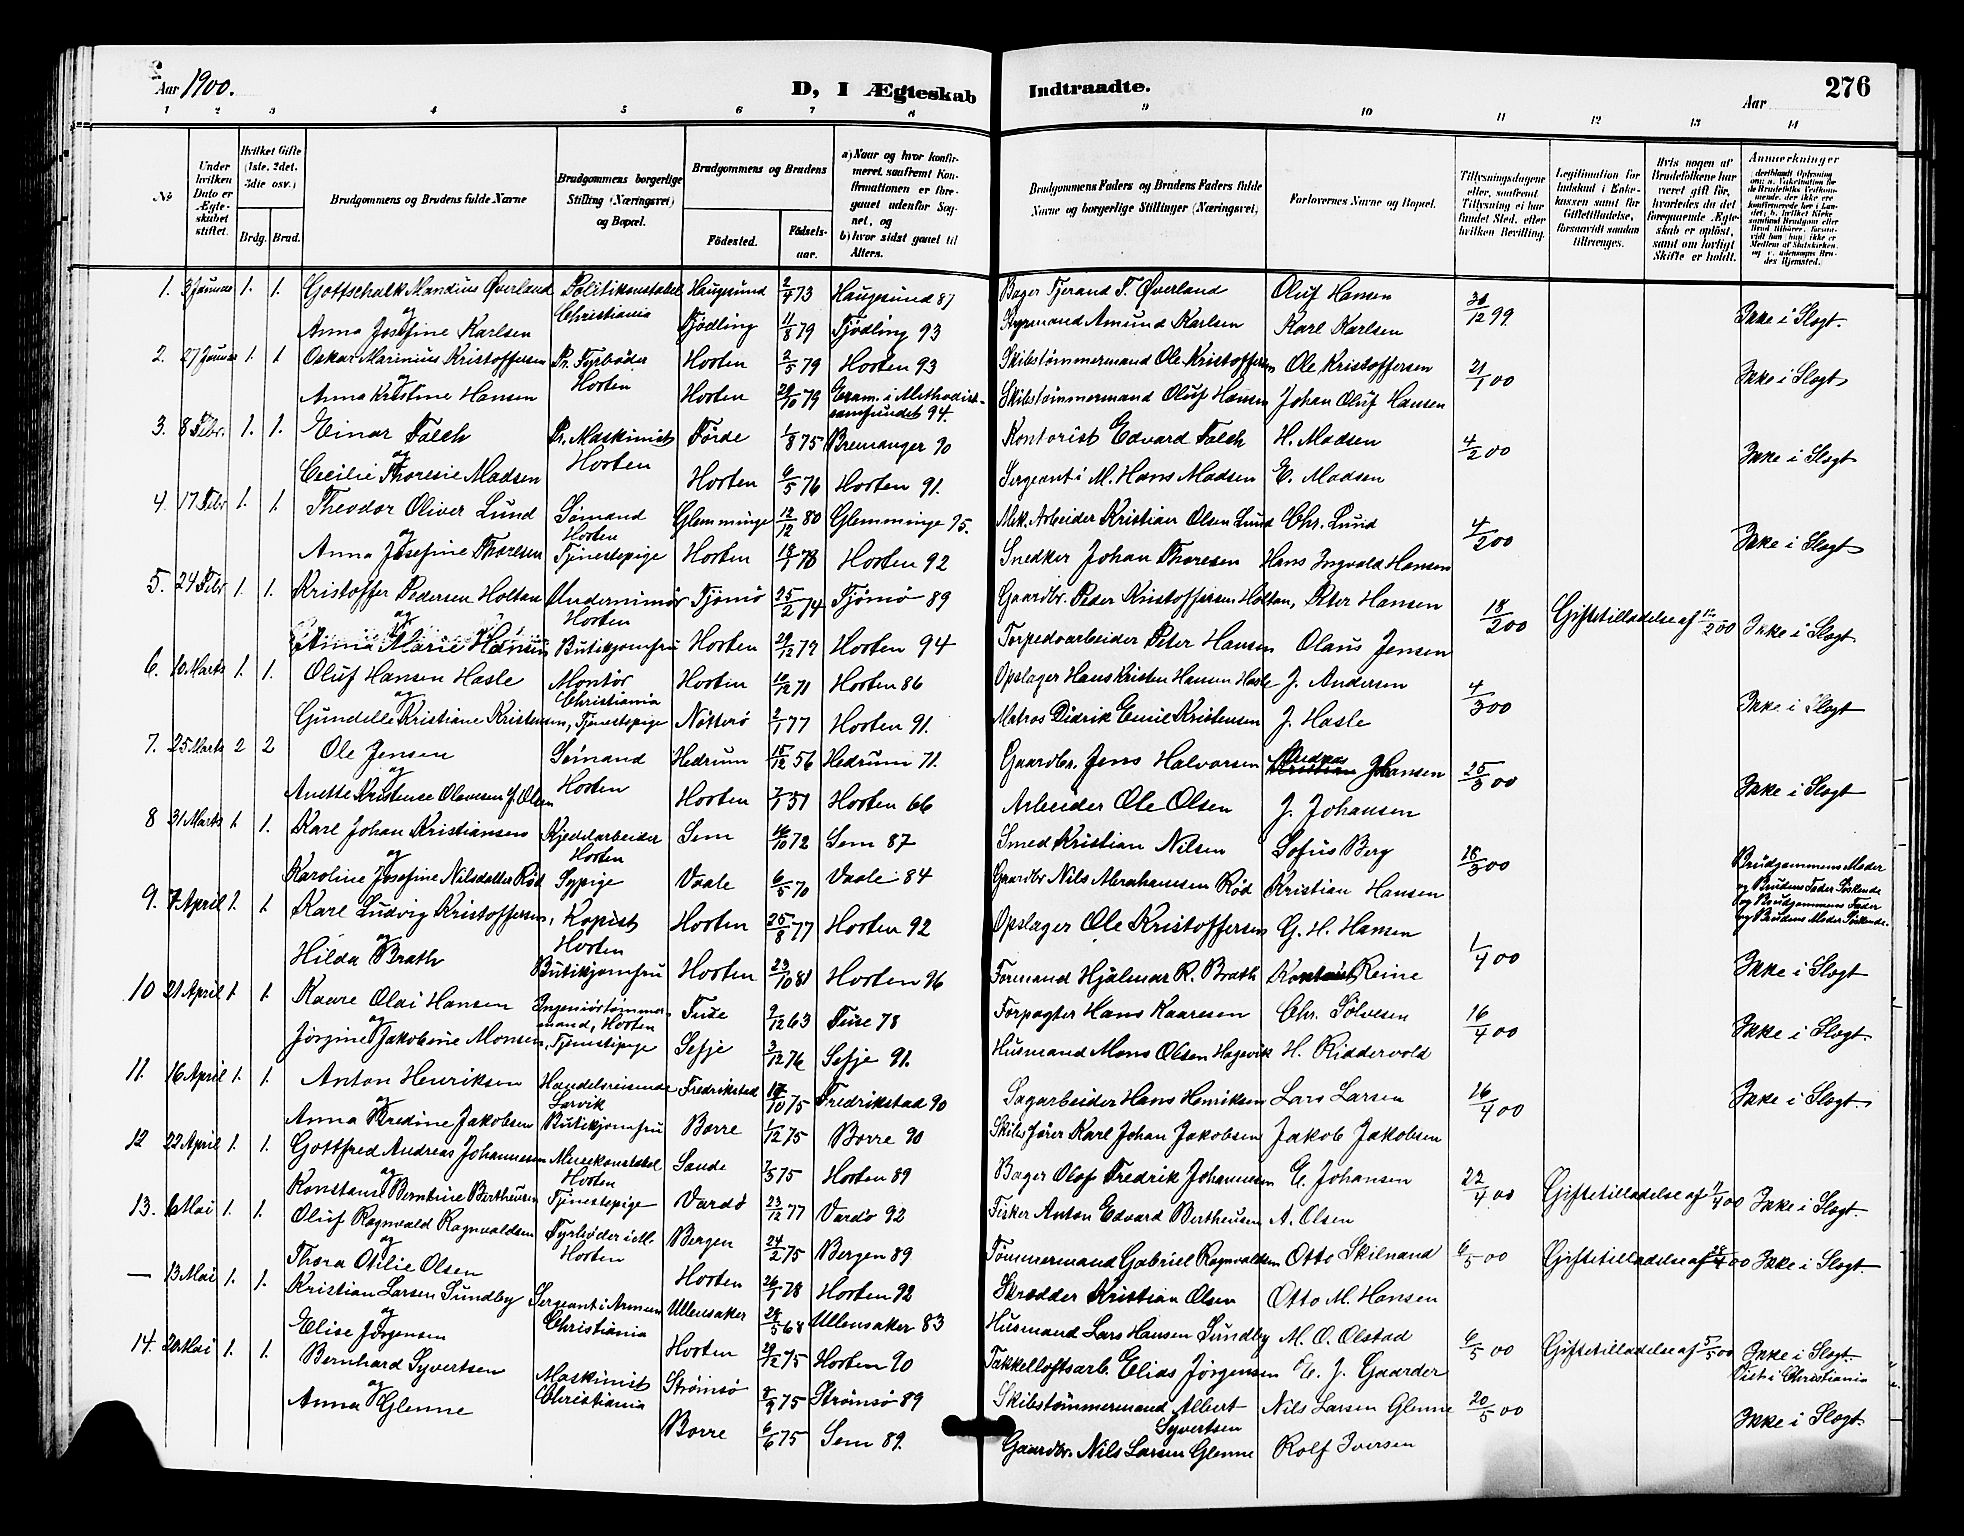 Aar 1900.
D, I Ægteskab Indtraadte.
Aar
276
1 2 3 4 5 6 7 8 9 10 11 12 13 14
No
Under hvilken Dato er Ægteskabet stiftet.
Hvilket Gifte (1ste, 2det, 3die osv.)
Brdg. Brud.
Brudgommens og Brudens fulde Navne
Brudgommens borgerlige Stilling (Næringsvei) og Bopæl.
Brudgommens og Brudens
Födested.
Födselsaar.
a) Naar og hvor konfirmeret, saafremt Konfirmationen er foregaaet udenfor Sognet, og b) hvor sidst gaaet til Alters.
Brudgommens Faders og Brudens Faders fulde Navne og borgerlige Stillinger (Næringsvei)
Forlovernes Navne og Bopæl.
Tillysningsdagene eller, saafremt Tillysning ei har fundet Sted, efter hvilken Bevilling.
Legitimation for Indskud i Enkekassen samt for Giftetilladelse, forsaavidt saadan tiltrænges.
Hvis nogen af Brudefolkene har været gift før, hvorledes da det foregaaende Ægteskab er oplöst, samt om lovligt Skifte er holdt.
Anmerkninger
1. 3 Januar 1. 1. Gottschalk Mandius Øverland Politikonstabel Haugesund 2/4 73 Haugesund 87 Bager Tjerand T. Øverland Oluf Hansen 31/12 99 Ikke i Slægt.
og Christiania
Anna Josefine Karlsen Tjødling 11/8 79 Tjödling 93 Styrmand Amund Karlsen Karl Karlsen
2. 27 Januar 1. 1 Oskar Marinius Kristoffersen Pr. Fyrbøder Horten 2/5 79 Horten 93 Skibstømmermand Ole Kristoffersen Ole Kristoffersen 21/1 00 Ikke i Slægt
og Horten
Anna Kristine Hansen Horten 29/10 79 Exam. i Methodistsamfundet 94. Skibstømmermand Oluf Hansen Johan Oluf Hansen
3. 8 Febr. 1. 1. Einar Falch Pr. Maskinist Førde 1/8 75 Bremanger 90 Kontorist Edvard Falch H. Madsen 4/2 00 Ikke i Slægt
og Horten
Cecilie Thoresie Madsen Horten 6/5 76 Horten 91. Sergeant i M. Hans Madsen E. Madsen
4. 17 Febr 1. 1. Theodor Oliver Lund Sømand Glemminge 12/12 80 Glemminge 95. Mek. Arbeider Kristian Olsen Lund Chr. Lund 4/2 00 Ikke i Slægt
og Horten
Anna Josefine Thoresen Tjenestepige Horten 18/1 78 Horten 92 Snedker Johan Thoresen Hans Ingvald Hansen
5. 24 Febr 1. 1. Kristoffer Pedersen Holtan Underminör Tjömö 25/2 74 Tjömø 89 Gaardbr. Peder Kristoffersen Holtan, Peter Hansen 18/2 00 Giftetilladelse af 12/2 00 Ikke i Slægt
og Horten
Anna Marie Hansen Butikjomfru Horten 29/12 79 Horten 94 Torpedoarbeider Peter Hansen Olaus Jensen
6. 10. Marts 1. 1. Oluf Hansen Hasle Montör Horten 10/12 71 Horten 86 Opslager Hans Kristen Hansen Hasle J. Andersen 4/3 00 Ikke i Slægt
og Christiania
Gundelle Kristiane Kristensen, Tjenestepige Nötterö 2/1 77 Horten 91. Matros Didrik Emil Kristensen J. Hasle
7. 25 Marts 2 2 Ole Jensen Sømand Hedrum 15/12 56 Hedrum 71. Gaardbr. Jens Halvorsen Hansen 25/3 00 Ikke i Slægt
og Horten
Anette Kristense Olavesen f. Olsen Horten 51 Horten 66 Arbeider Ole Olsen J. Johansen
8 31 Marts 1. 1. Karl Johan Kristiansen Kjedelarbeider Sem 16/10 72 Sem 87 Smed Kristian Nilsen Sofus Berg 18/3 00 Brudgommens Moder og Brudens Fader Söskende og Brudgommens Fader og Brudens Moder Söskende.
og Horten
Karoline Josefine Nilsdatter Rød Sypige Vaale 6/5 70 Vaale 84 Gaardbr Nils Abrahamsen Rød Kristian Hansen
9. 7 April 1. 1. Karl Ludvig Kristoffersen, Kopist Horten 25/8 77 Horten 92 Opslager Ole Kristoffersen G. H. Hansen 1/4 00 Ikke i Slægt
og Horten
Hilda Brath Butikjomfru Horten 23/10 81 Horten 96 Formand Hjalmar R. Brath Kontorist Reine
10 21 April 1. 1. Kaare Olai Hansen Ingeniörtømmermand, Horten 9/12 63 78 Forpagter Hans Kaaresen Chr. Sølvesen 16/4 00 Ikke i Slægt.
og
Jørgine Jakobine Monsen, Tjenestepige Sefje 3/12 76 Sefje 91. Husmand Mons Olsen Hagevik H. Riddervold
11. 16 April 1. 1. Anton Henriksen Handelsreisende Fredrikstad 17/10 75 Fredrikstad 90 Sagarbeider Hans Henriksen Lars Larsen 16/4 00 Ikke i Slægt.
og Larvik
Anna Fredine Jakobsen Butikjomfru Borre 1/12 75 Borre 90 Skibsfører Karl Johan Jakobsen Jakob Jakobsen
12 22 April 1. 1. Gottfred Andreas Johannesen Minekonstabel Sande 7/5 75 Horten 89 Bager Olaf Fredrik Johannesen E. Johansen 22/4 00 Giftetilladelse af 7/4 00 Ikke i Slægt.
og Horten
Konstanse Berntine Bertheusen Tjenestepige Vardö 23/12 77 Vardø 92 Fisker Anton Edvard Bertheusen A. Olsen
13. 6 Mai 1. 1. Oluf Ragnvald Ragnvaldsen Fyrbøder i M. Bergen 24/2 75 Bergen 89 Tømmermand Gabriel Ragnvaldsen Otto Skilnand 6/5 00 Giftetilladelse af 28/4 00 Ikke i Slægt.
og Horten
Thora Otilie Olsen Horten 26/1 78 Horten 92 Skrædder Kristian Olsen Otto M. Hansen
— 13 Mai 1. 1. Kristian Larsen Sundby Sergeant i Armeen Ullensaker 28/5 68 Ullensaker 83 Husmand Lars Hansen Sundby M. O. Olstad 6/5 00 Giftetilladelse af 5/5 00 Ikke i Slægt.
og Christiania
Elise Jørgensen Horten 29/12 75 Horten 90 Takkelloftsarb. Elias Jørgensen E. J. Gaarder Viet i Christiania
14. 20 Mai 1. 1. Bernhard Syvertsen Maskinist Strømsø 8/9 75 Strømsø 89 Skibstømmermand Albert Syvertsen Nils Larsen Glenne 20/5 00 Ikke i Slægt
og Christiania
Anna Glenne Borre 6/6 75 Sem 89. Gaardbr. Nils Larsen Glenne Rolf Iversen